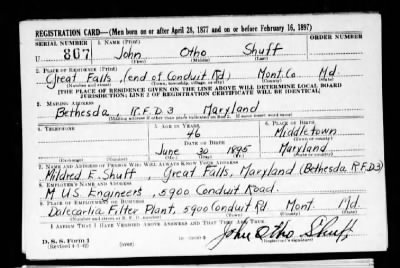 REGISTRATION CARD—(Men born on or after April 28, 1877 and on or before February 16, 1897)
SERIAL NUMBER
1. NAME (Print)
U 807
John Otho Shuff
(First) (Middle) (Last)
2. PLACE OF RESIDENCE (Print)
Great Falls, (end of Conduit Rd) Mont. Co Md.
(Number and street) (Town, township, village, or city) (County) (State)
[THE PLACE OF RESIDENCE GIVEN ON THE LINE ABOVE WILL DETERMINE LOCAL BOARD
JURISDICTION; LINE 2 OF REGISTRATION CERTIFICATE WILL BE IDENTICAL]
3. MAILING ADDRESS
Bethesda R.F.D 3 Maryland
[Mailing address if other than place indicated on line 2. If same insert word same]
4. TELEPHONE
5. AGE IN YEARS
46
PLACE OF BIRTH
Middletown
(Town or county)
DATE OF BIRTH
June 30 1895
Maryland
(Exchange) (Number)
(Mo.) (Day) (Yr.)
(State or country)
7. NAME AND ADDRESS OF PERSON WHO WILL ALWAYS KNOW YOUR ADDRESS
Mildred E. Shuff, Great Falls, Maryland (Bethesda R.F.D3)
8. EMPLOYER'S NAME AND ADDRESS
U.S. Engineers, 5900 Conduit Road.
9. PLACE OF EMPLOYMENT OR BUSINESS
Dalecarlia Filter Plant, 5900 Conduit Rd Mont Md.
(Number and street or R. F. D. number) (Town) (County) (State)
I AFFIRM THAT I HAVE VERIFIED ABOVE ANSWERS AND THAT THEY ARE TRUE.
D. S. S. Form 1
(Revised 4-1-42) (over)
John Otho Shuff
(Registrant's signature)